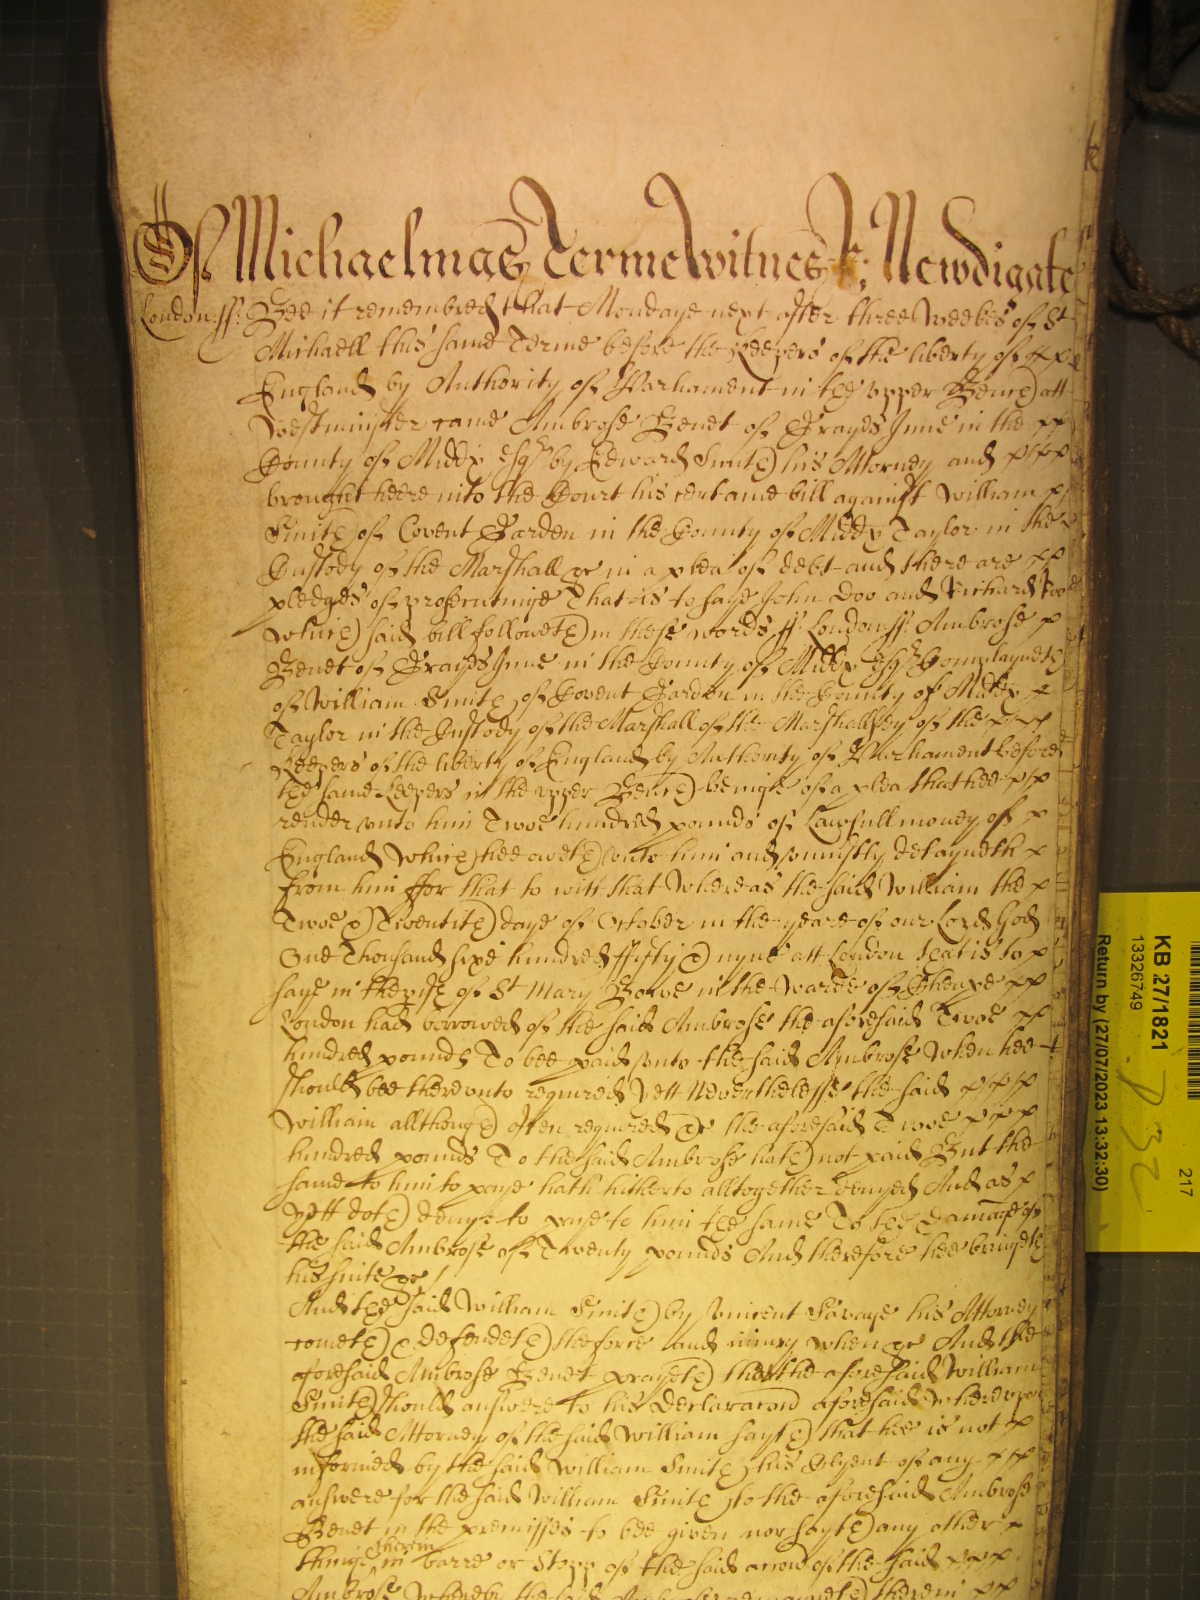 Of Michaelmas Terme Witnes R: Newdigate
London: ss: Bee it remembred that Mondaye next after three weekes of St
Michaell this same Terme before the Keepers of the liberty of
England by Authority of Parliament in the upper Bench att
Westminster came Ambrose Benet of Grayes Inne in the
County of Middx Esqr by Edward Smith his Attorney and
brought heere into the Court his certaine bill against William
Smith of Covent Garden in the County of Middx Taylor in the
Custody of the Marshall &c in a plea of debt and there are
pledges of prosecutinge That is to saye John Doo and Richard Roo
which said bill followeth in these words ss: London: ss: Ambrose
Benet of Grayes Inne in the County of Middx Esqr Complayneth
of William Smith of Covent Garden in the County of Middx
Taylor in the Custody of the Marshall of the Marshallsey of the
Keepers of the liberty of England by Authority of Parliament before
the same Keepers in the upper Bench beinge of a plea that hee
render unto him Twoe hundred pounds of Lawfull money of
England which hee oweth unto him and uniustly detayneth
from him ffor that to witt that Whereas the said William the
Twoe & Twentith daye of October in the yeare of our Lord God
One Thousand sixe hundred ffifty & nyne att London that is to
saye in the pish of St Mary Bowe in the Warde of Cheape
London had borrowed of the said Ambrose the aforesaid Twoe
hundred pounds To bee paid unto the said Ambrose When hee
should bee thereunto required Yett Neverthelesse the said
William allthough often required &c the aforesaid Twoe
hundred pounds To the said Ambrose hath not paid But the
same to him to paye hath hitherto alltogether denyed And as
yett doth denye to paye to him the same To the Damage of
the said Ambrose of Twenty pounds And therefore hee bringeth
his suite &c /
And the said William Smith by Vincent Savage his Attorney
cometh & Defendeth the force and iniury when &c And the
aforesaid Ambrose Benet prayeth that the aforesaid William
Smith should answere to his Declaracon aforesaid Whereupon
the said Attorney of the said William sayth that hee is not
informed by the said William Smith his Clyent of any
answere for the said William Smith to the aforesaid Ambrose
Benet in the premisses to bee given nor sayth any other
thinge therein in barre or Stopp of the said accon of the said
Ambrose Whereby the said Ambrose remayneth therein
KB 27/1821
13326749
Return by (27/07/2023 13:32:30)
217